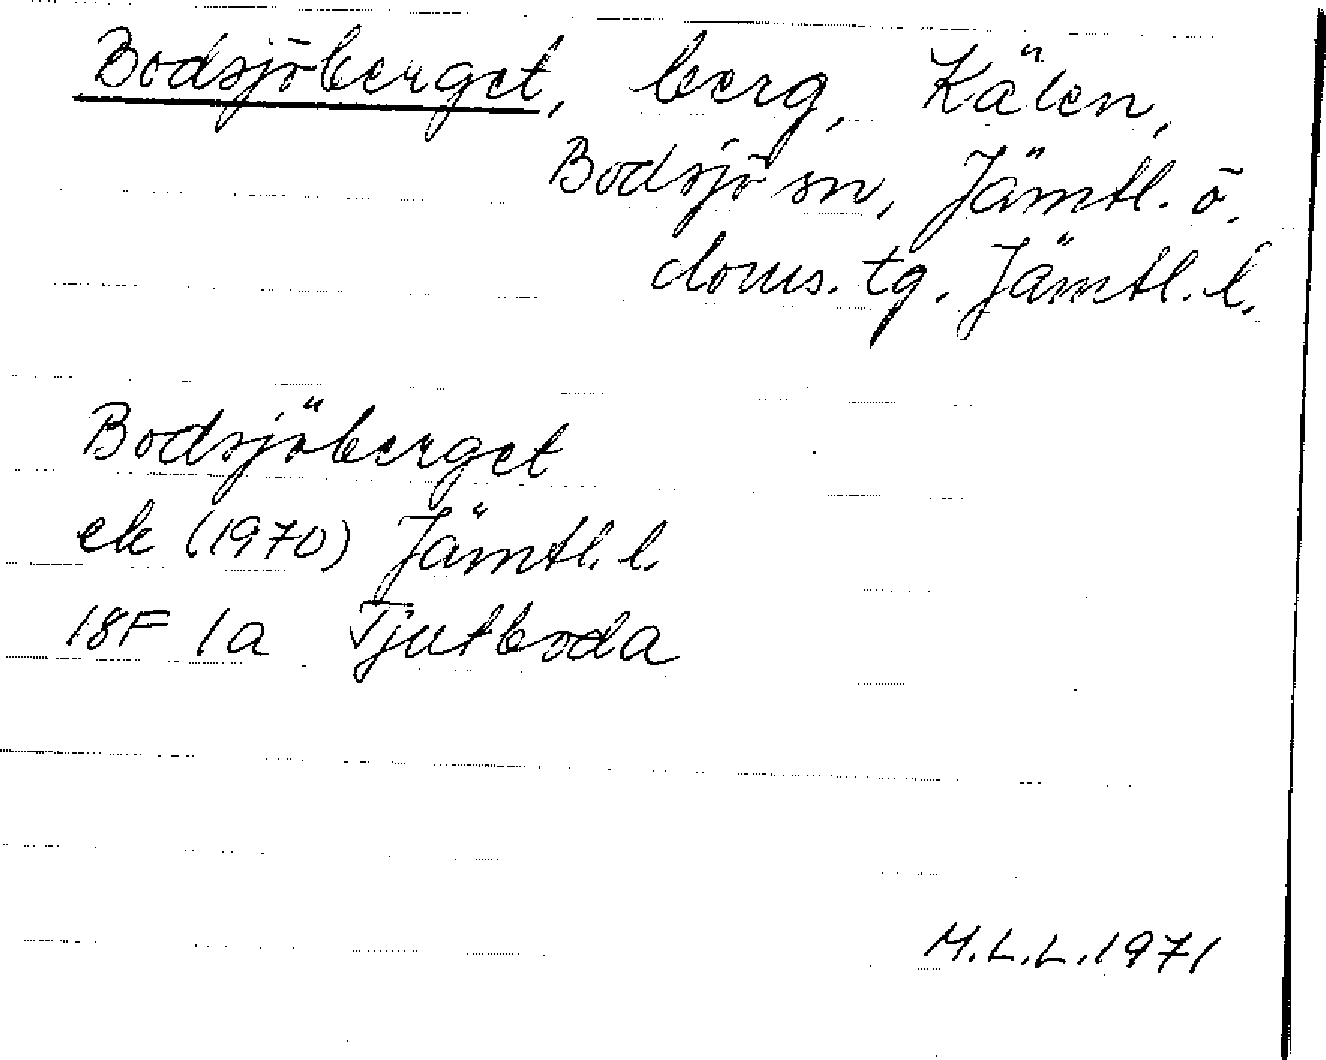 Bodsjöberget, berg, Kälen,
Bodsjö sn, Jämtl. ö.
doms. tg. Jämtl. l.
Bodsjöberget
ek (1970) Jämtl. l.
18F 1a Tjutboda
M.L.L. 1971